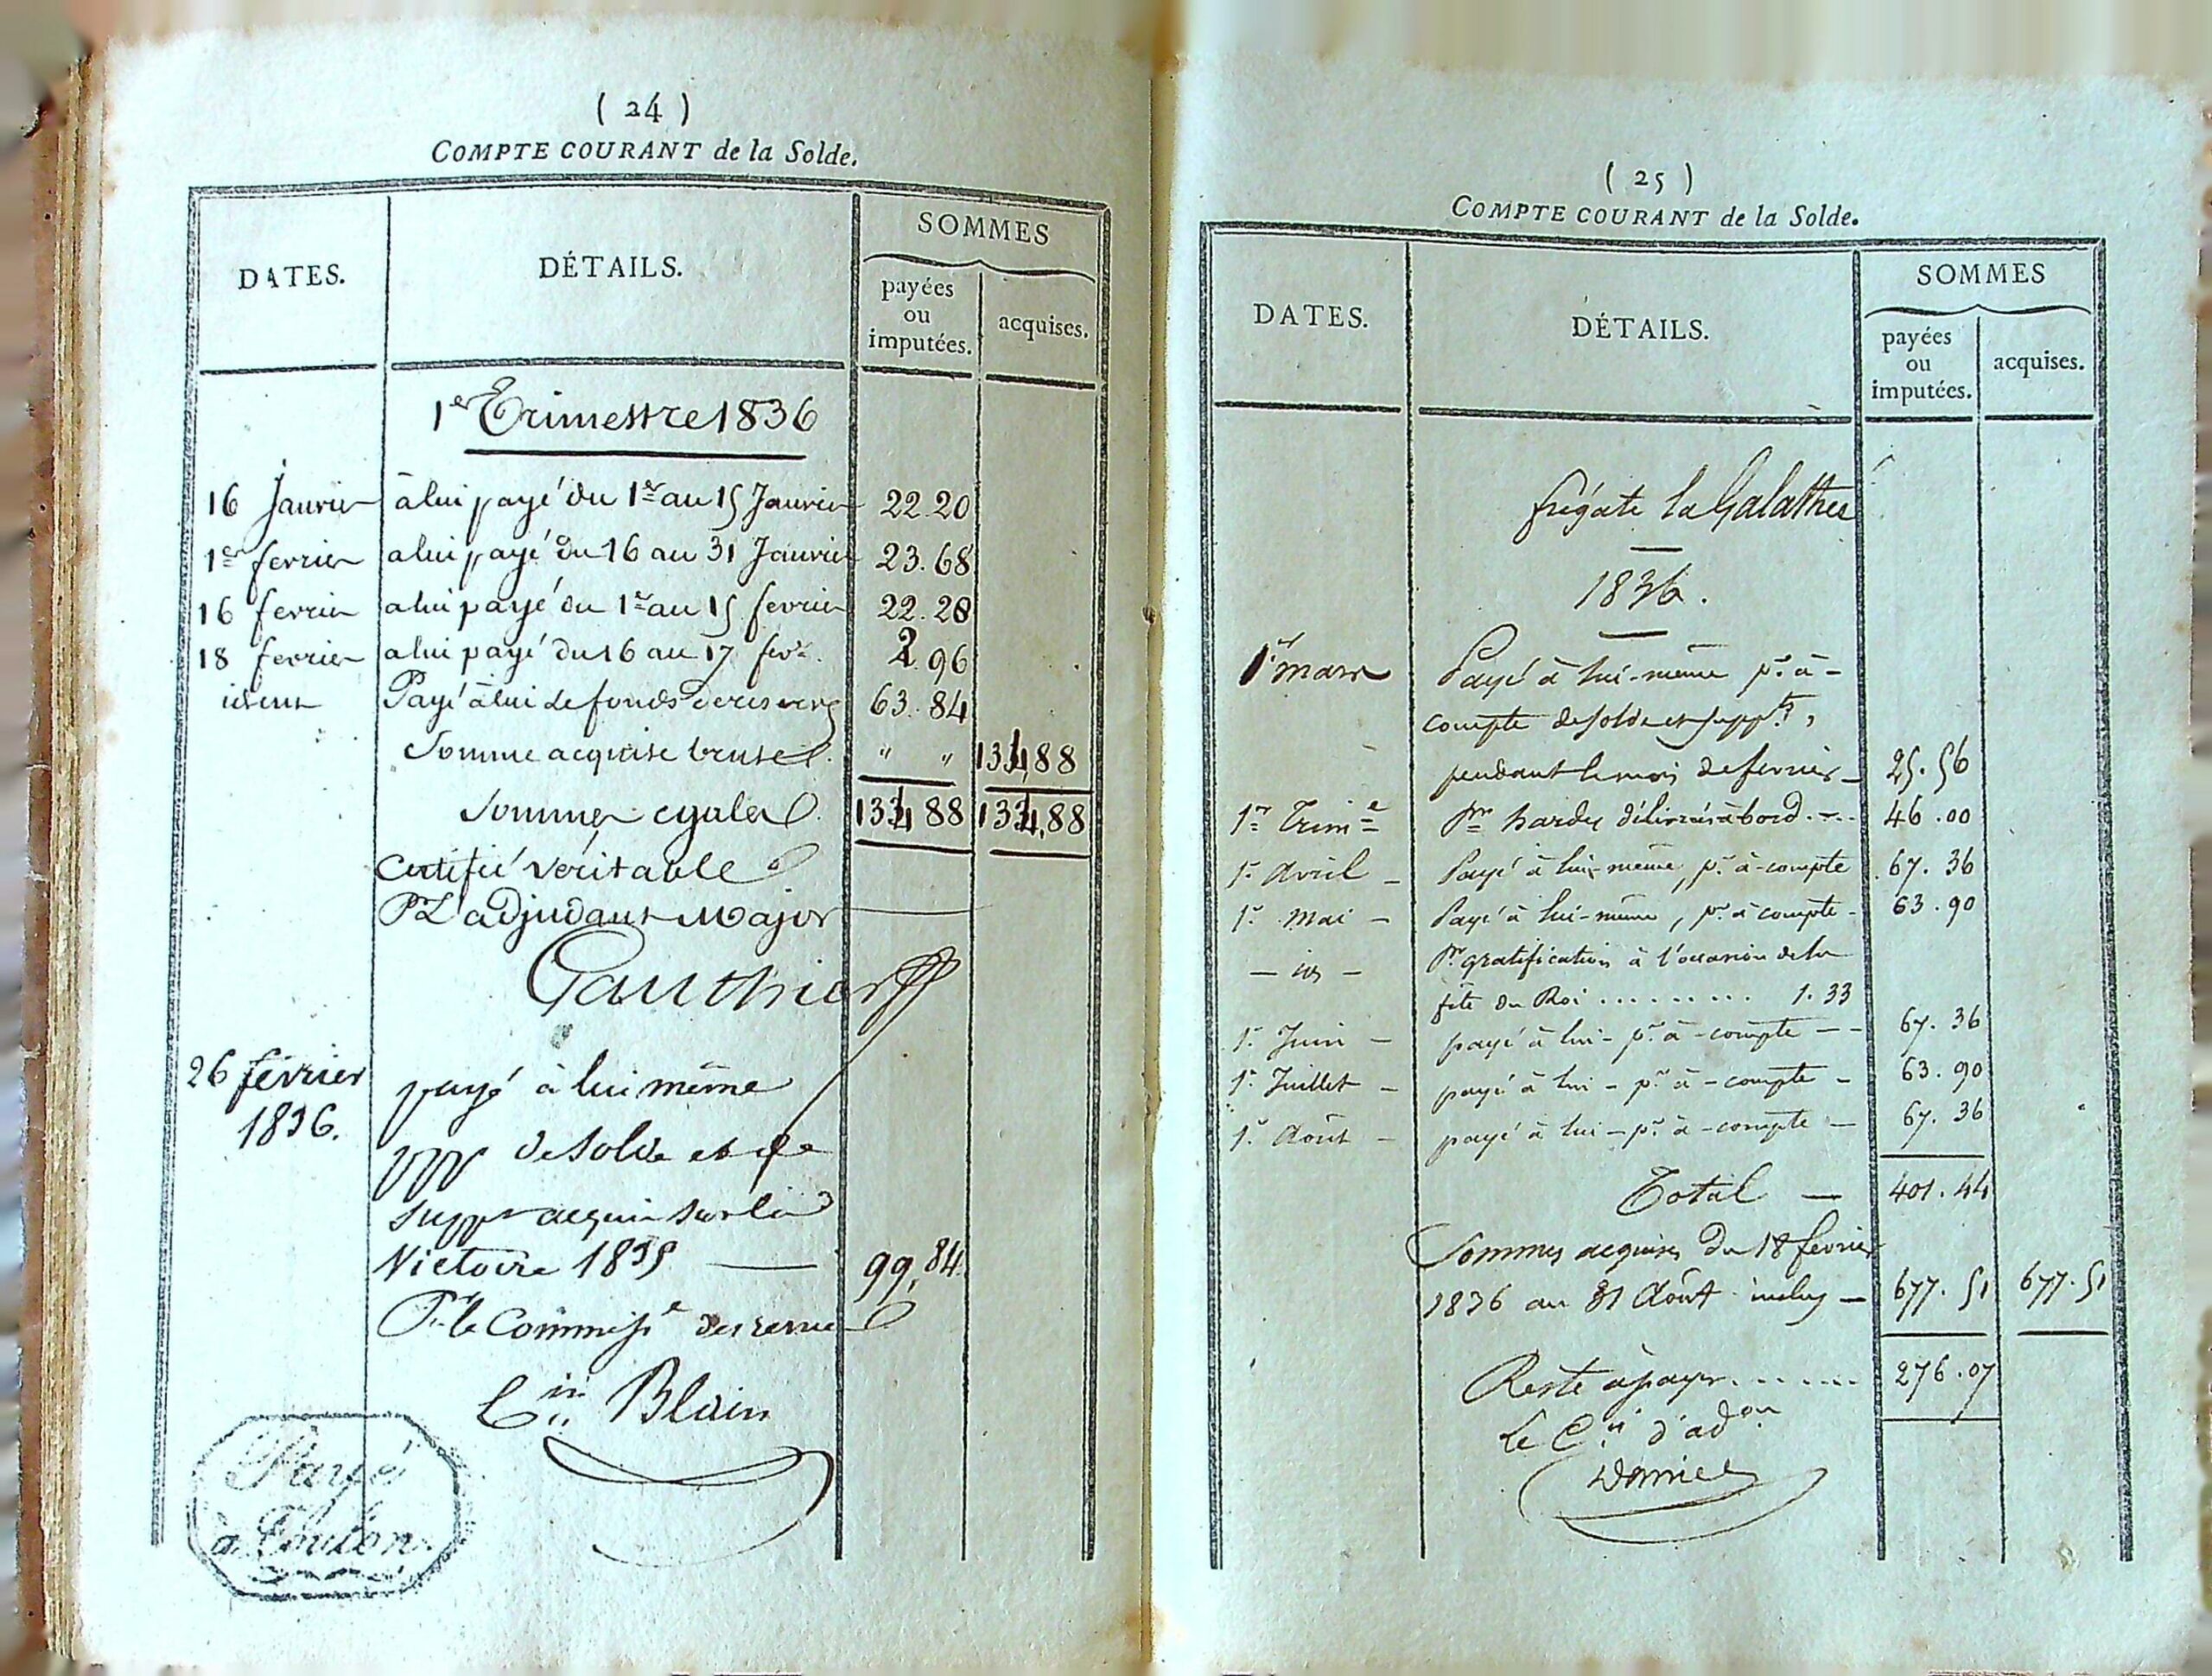 ( 24 )
COMPTE COURANT de la Solde.
DATES.
DÉTAILS.
SOMMES
payées
ou
imputées.
acquises.
1er Trimestre 1836
16 Janvier à lui payé du 1er au 15 Janvier 22.20
1er fevrier a lui payé du 16 au 31 Janvier 23.68
16 fevrier a lui payé du 1er au 15 fevrier 22.20
18 fevrier a lui payé du 16 au 17 fevr. 2.96
idem Payé à lui de fonds de reserve 63.84
Somme acquise brute " " 134,88
Sommes egales 134 88 134,88
Certifié véritable
Pr L'adjudant Major
Gauthier
26 février payé à lui même
1836.
de solde et de
supp.t acquis sur la
Victoire 1835 — 99,84
Pr le Commiss.e des revues
Blain
Payé
à Toulon
( 25 )
COMPTE COURANT de la Solde.
DATES.
DÉTAILS.
SOMMES
payées
ou
imputées.
acquises.
frégate la Galathée
1836.
1er mars Payé à lui-même pr. à-
compte de solde et supp.ts,
pendant le mois de fevrier — 25.56
1er Trim.e Pr hardes délivrées à bord. -.. 46.00
1er Avril — Payé à lui-même, pr. à-compte 67.36
1er Mai — Payé à lui-même, pr. à compte - 63.90
— id — Pr gratification à l'occasion de la
fête du Roi ......... 1.33
1er Juin — payé à lui - pr. à-compte - - 67.36
1er Juillet — payé à lui - pr. à-compte - 63.90
1er Août — payé à lui - pr. à-compte - 67.36
Total — 401.44
Sommes acquises du 18 fevrier
1836 au 31 Août inclus — 677.51 677.51
Reste à payer...... 276.07
Le C.is d'ad.on
Daniel